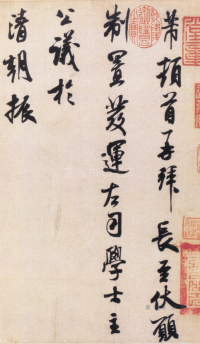 芾頓首再拜 長至伏願
制置發運左司學士主
公議於
清朝振